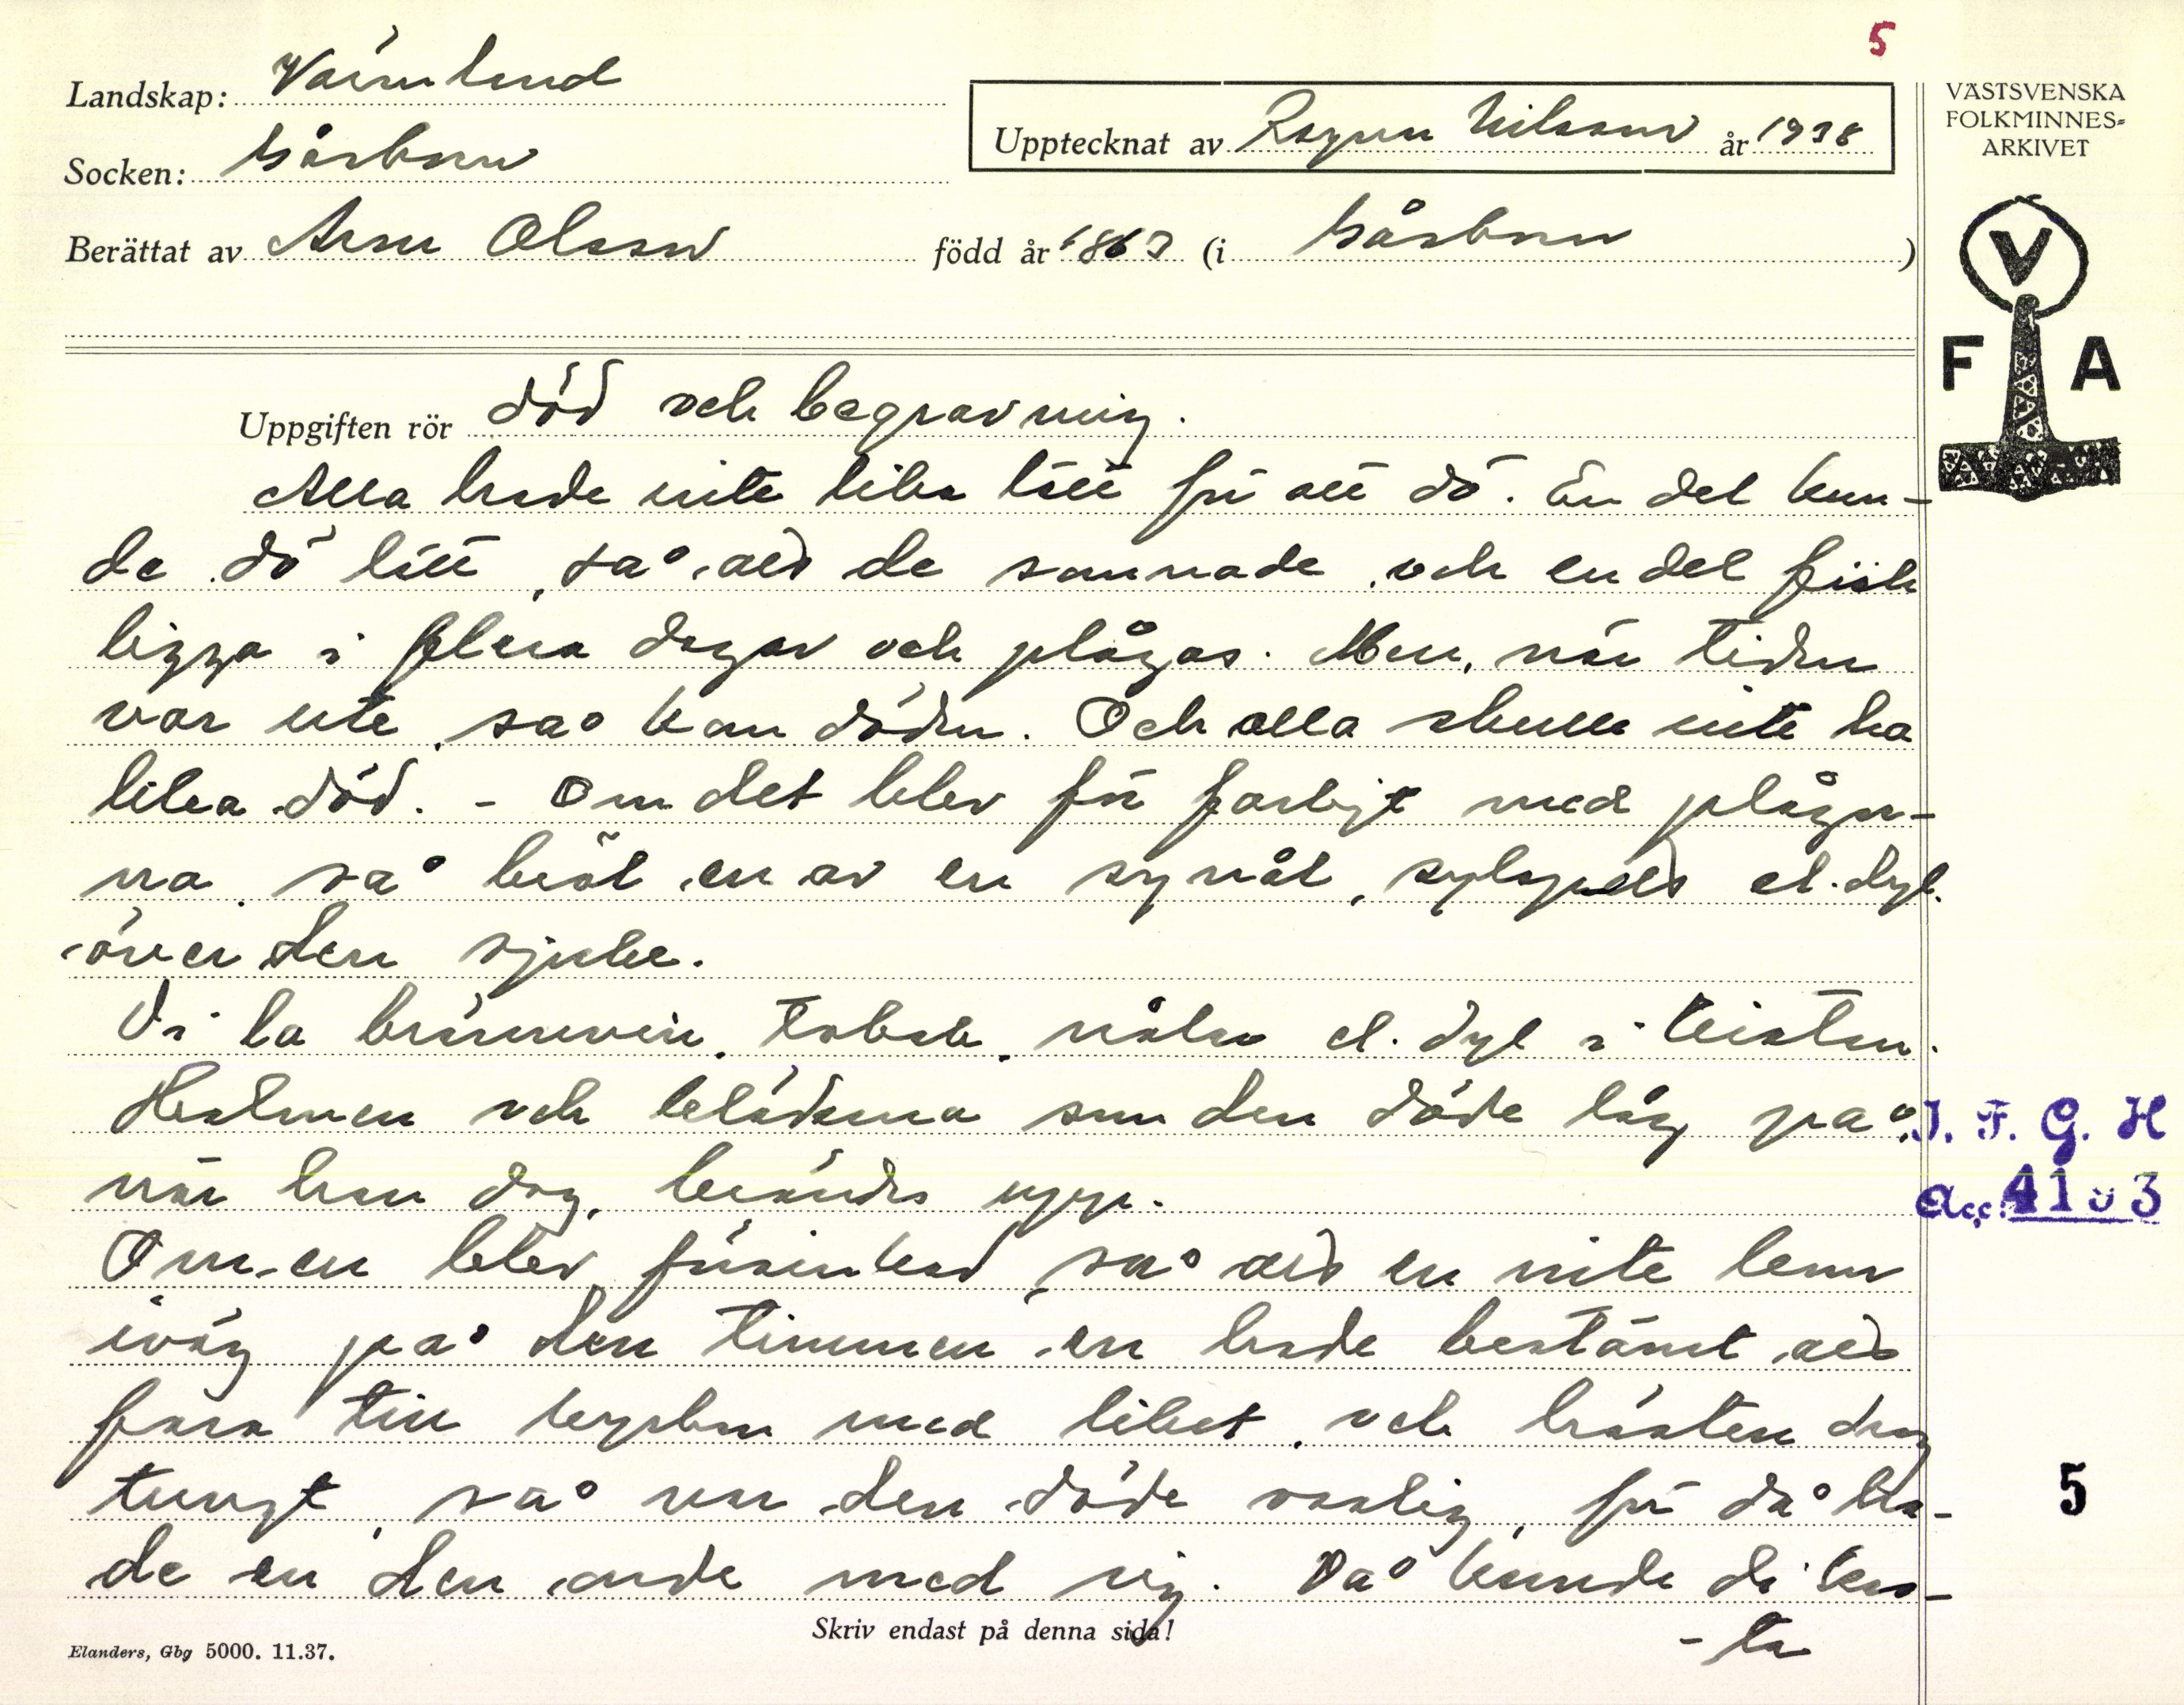 5
Landskap: Värmland
Socken: Gåsborn
Upptecknat av Ragnar Nilsson år 1938
VÄSTSVENSKA
FOLKMINNES-
ARKIVET
Berättat av Olsson född år 1863 (i Gåsborn)
V
F A
Uppgiften rör död och begravning.
Alla hade inte lika lätt för att dö. En del kun-
de dö lätt, så att de somnade och en del fick
ligga i flera dagar och plågas. Men, när tiden
var ute, så kom döden. Och alla skulle inte ha
lika död. - Om det blev för farligt med plågor-
na, så bröt en av en synål, el. dyl.
över den sjuke.
Vi la brännvin, tobak, nålar el. dyl i kistan.
Halmen och kläderna som den döde låg på,
när han dog, brändes upp.
Om en blev försinkad, så att en inte kom
iväg på den timmen en hade bestämt att
fara till kyrkan med liket, och hästen drog
tungt, så var den döde osalig, för då ha-
de en den onde med sig. Då kunde di kas-
- ta
I. F. G. H
Acc. 4103
5
Skriv endast på denna sida!
Elanders, Gbg 5000. 11.37.